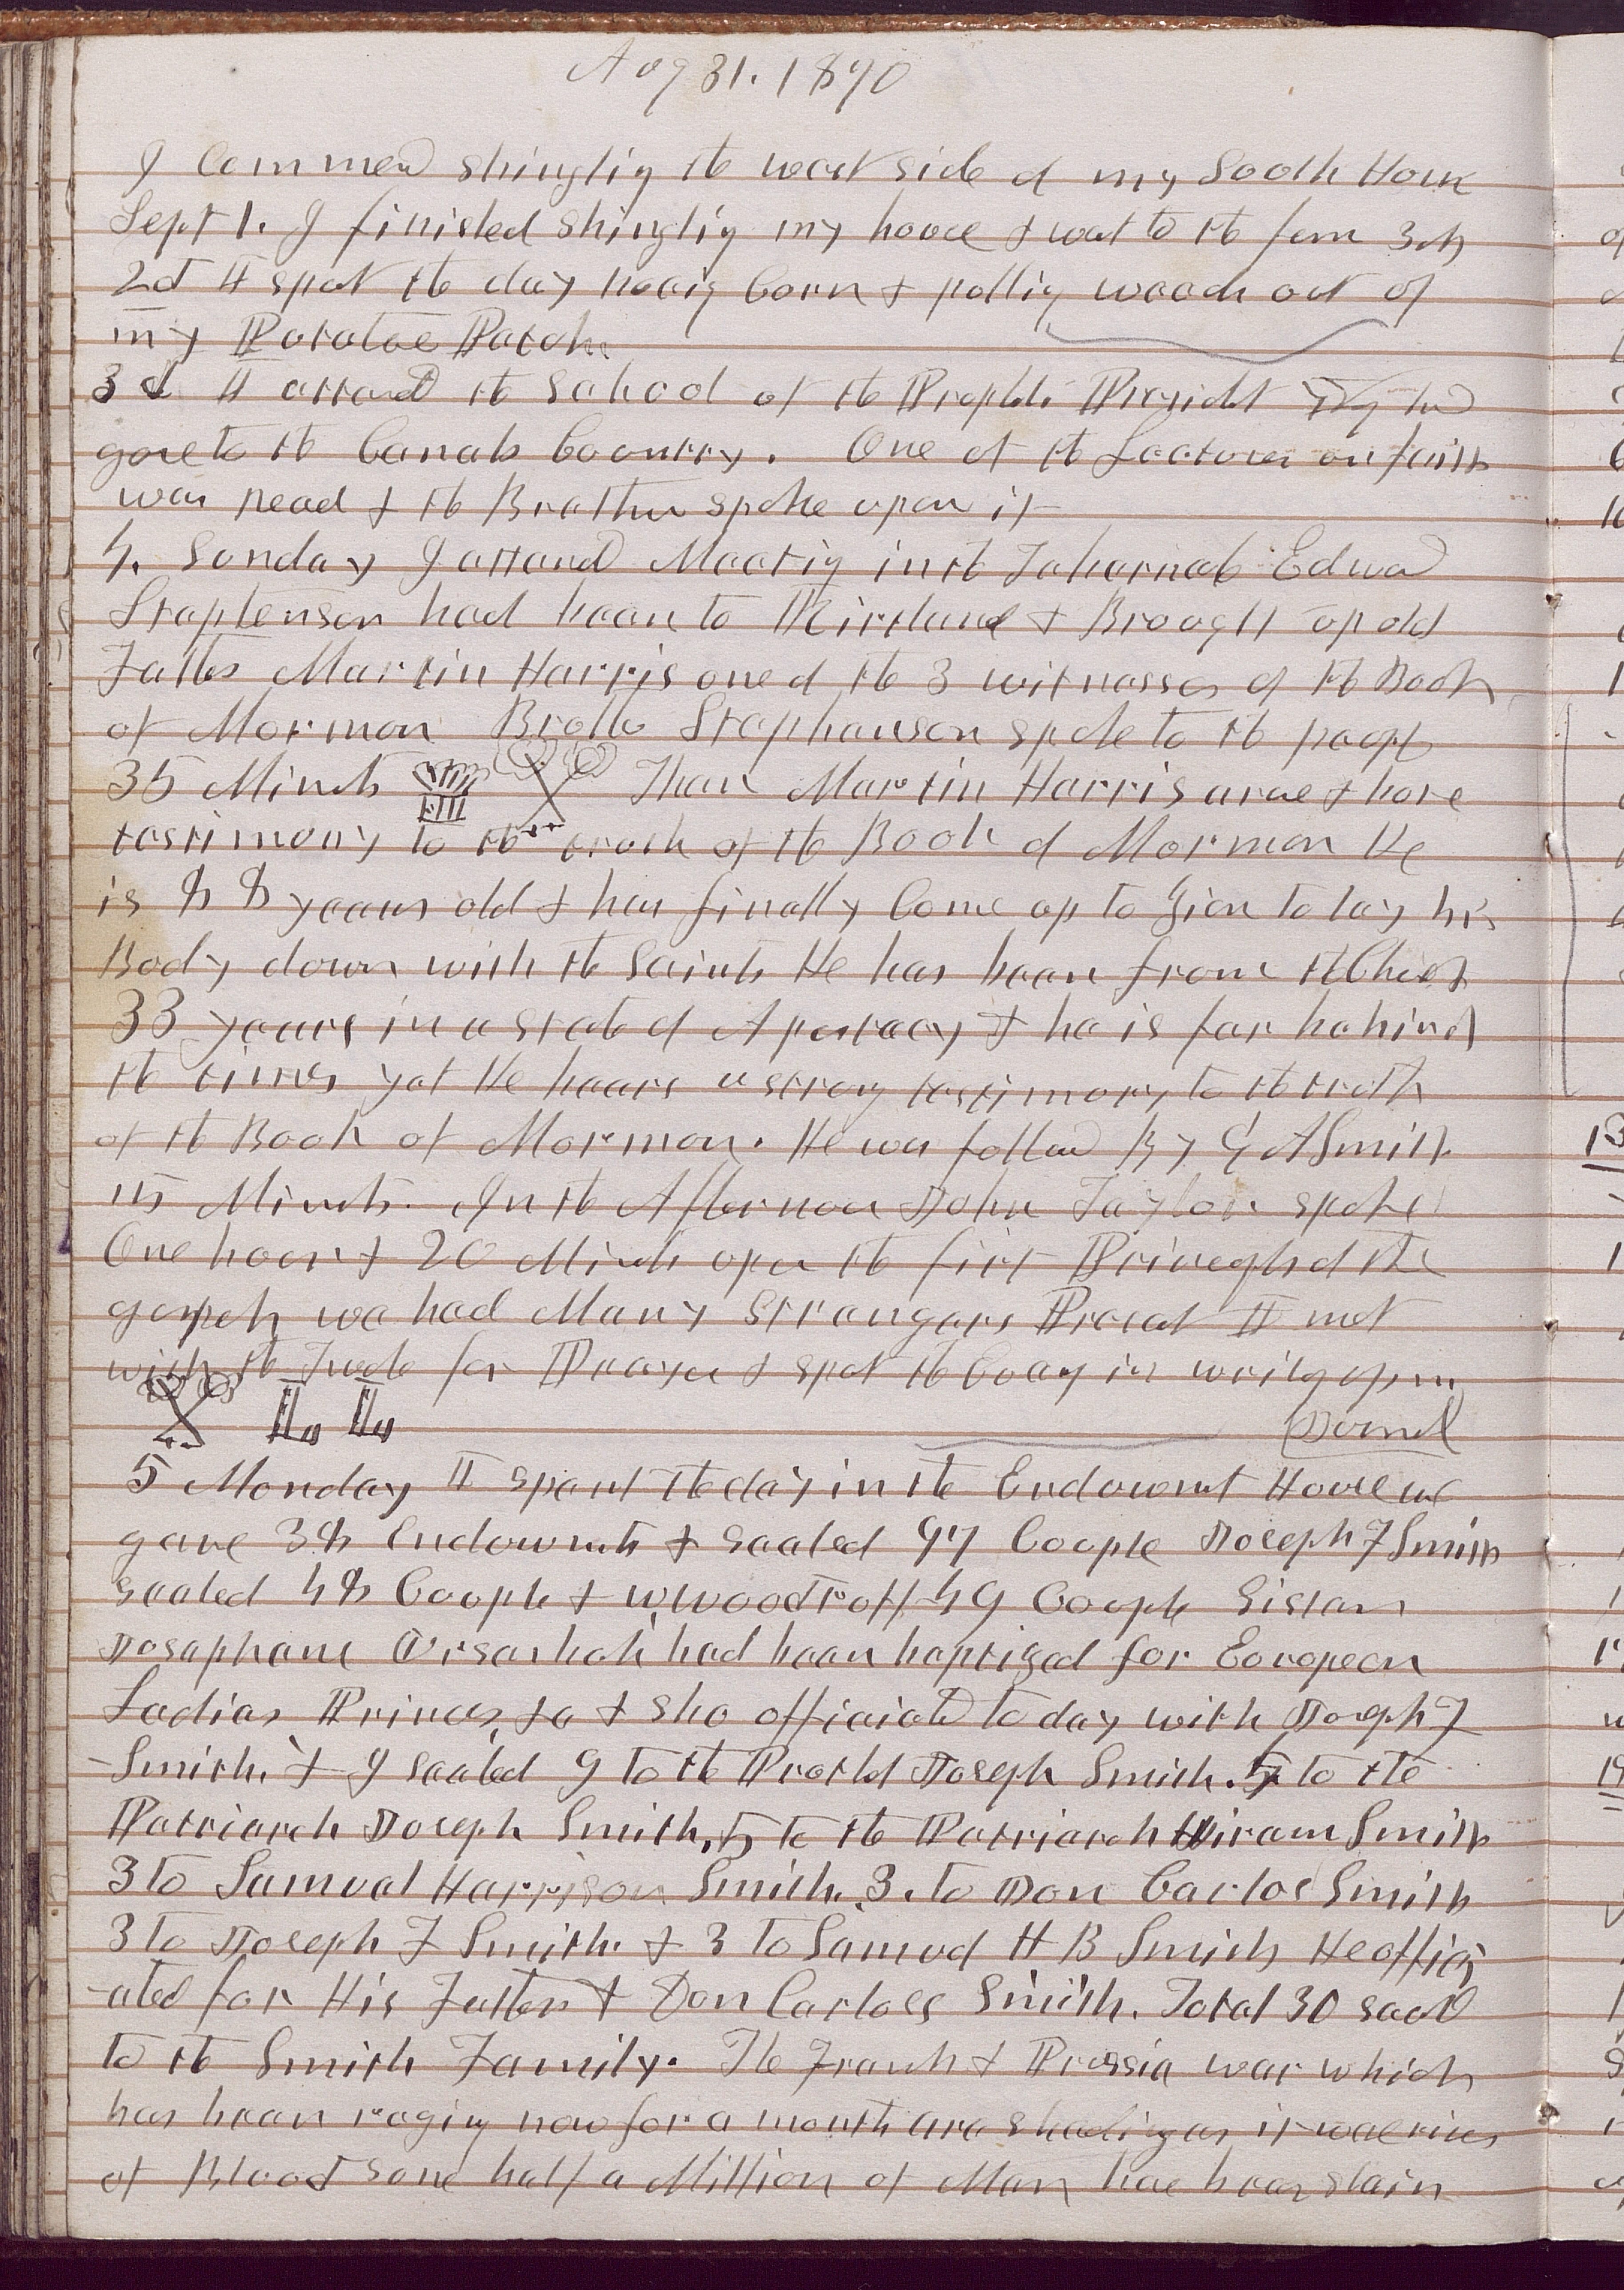 Aug 31. 1870
I Commend shingling the west side of my South House
Sept 1. I finished shingling my house & went to the farm 3 m
2d I spent the day hoeing Corn & pulling weeds out of
my Potatoe Patch
3d I attend the School of the Prophets President Young had
gone to the Canab Country. One of the Lectures on faith
was read & the Brethren spoke upon it
4. Sunday I attend Meeting in the Tabernacle Edwd
Stephenson had been to Kirtland & Brought up old
Father Martin Harris one of the 3 witnesses of the Book
of Mormon Brother Stephenson spoke to the people
35 Minuts Then Martin Harris arose & bore
testimony to the truth of the Book of Mormon He
is 88 years old & has finally Come up to Zion to lay his
Body down with the Saints He has been from the Church
33 years in a state of Apostacy & he is far behind
the times yet He bears a strong testimony to the truth
of the Book of Mormon. He was followed By G A Smith
15 Minuts. In the Afternoon John Taylor spoke
One hour & 20 Minuts upon the first Principles of the
gospel we had Many Strangers Present I met
with the Twelve for Prayer & spent the evening in writing upon my
Journal
5 Monday I spent the day in the Endowment House we
gave 38 Endowments & sealed 97 Couple Joseph F Smith
sealed 48 Couple & W. Woodruff 49 Couple Sister
Josephine had been baptized for European
Ladies Princes &c & she officiated to day with Joseph F
-Smith. & I sealed 9 to the Prophet Joseph Smith. 4 to the
Patriarch Joseph Smith, 5 to the Patriarch Hiram Smith
3 to Samuel Harrison Smith. 3. to Don Carlos Smith
3 to Joseph F Smith. & 3 to Samuel H B Smith He offici
-ated for His Father & Don Carloss Smith. Total 30 seald
to the Smith Family. The French & Prussia war which
has been raging now for a month are sheding as it wae rivers
of Blood some half a Million of Men have been slain